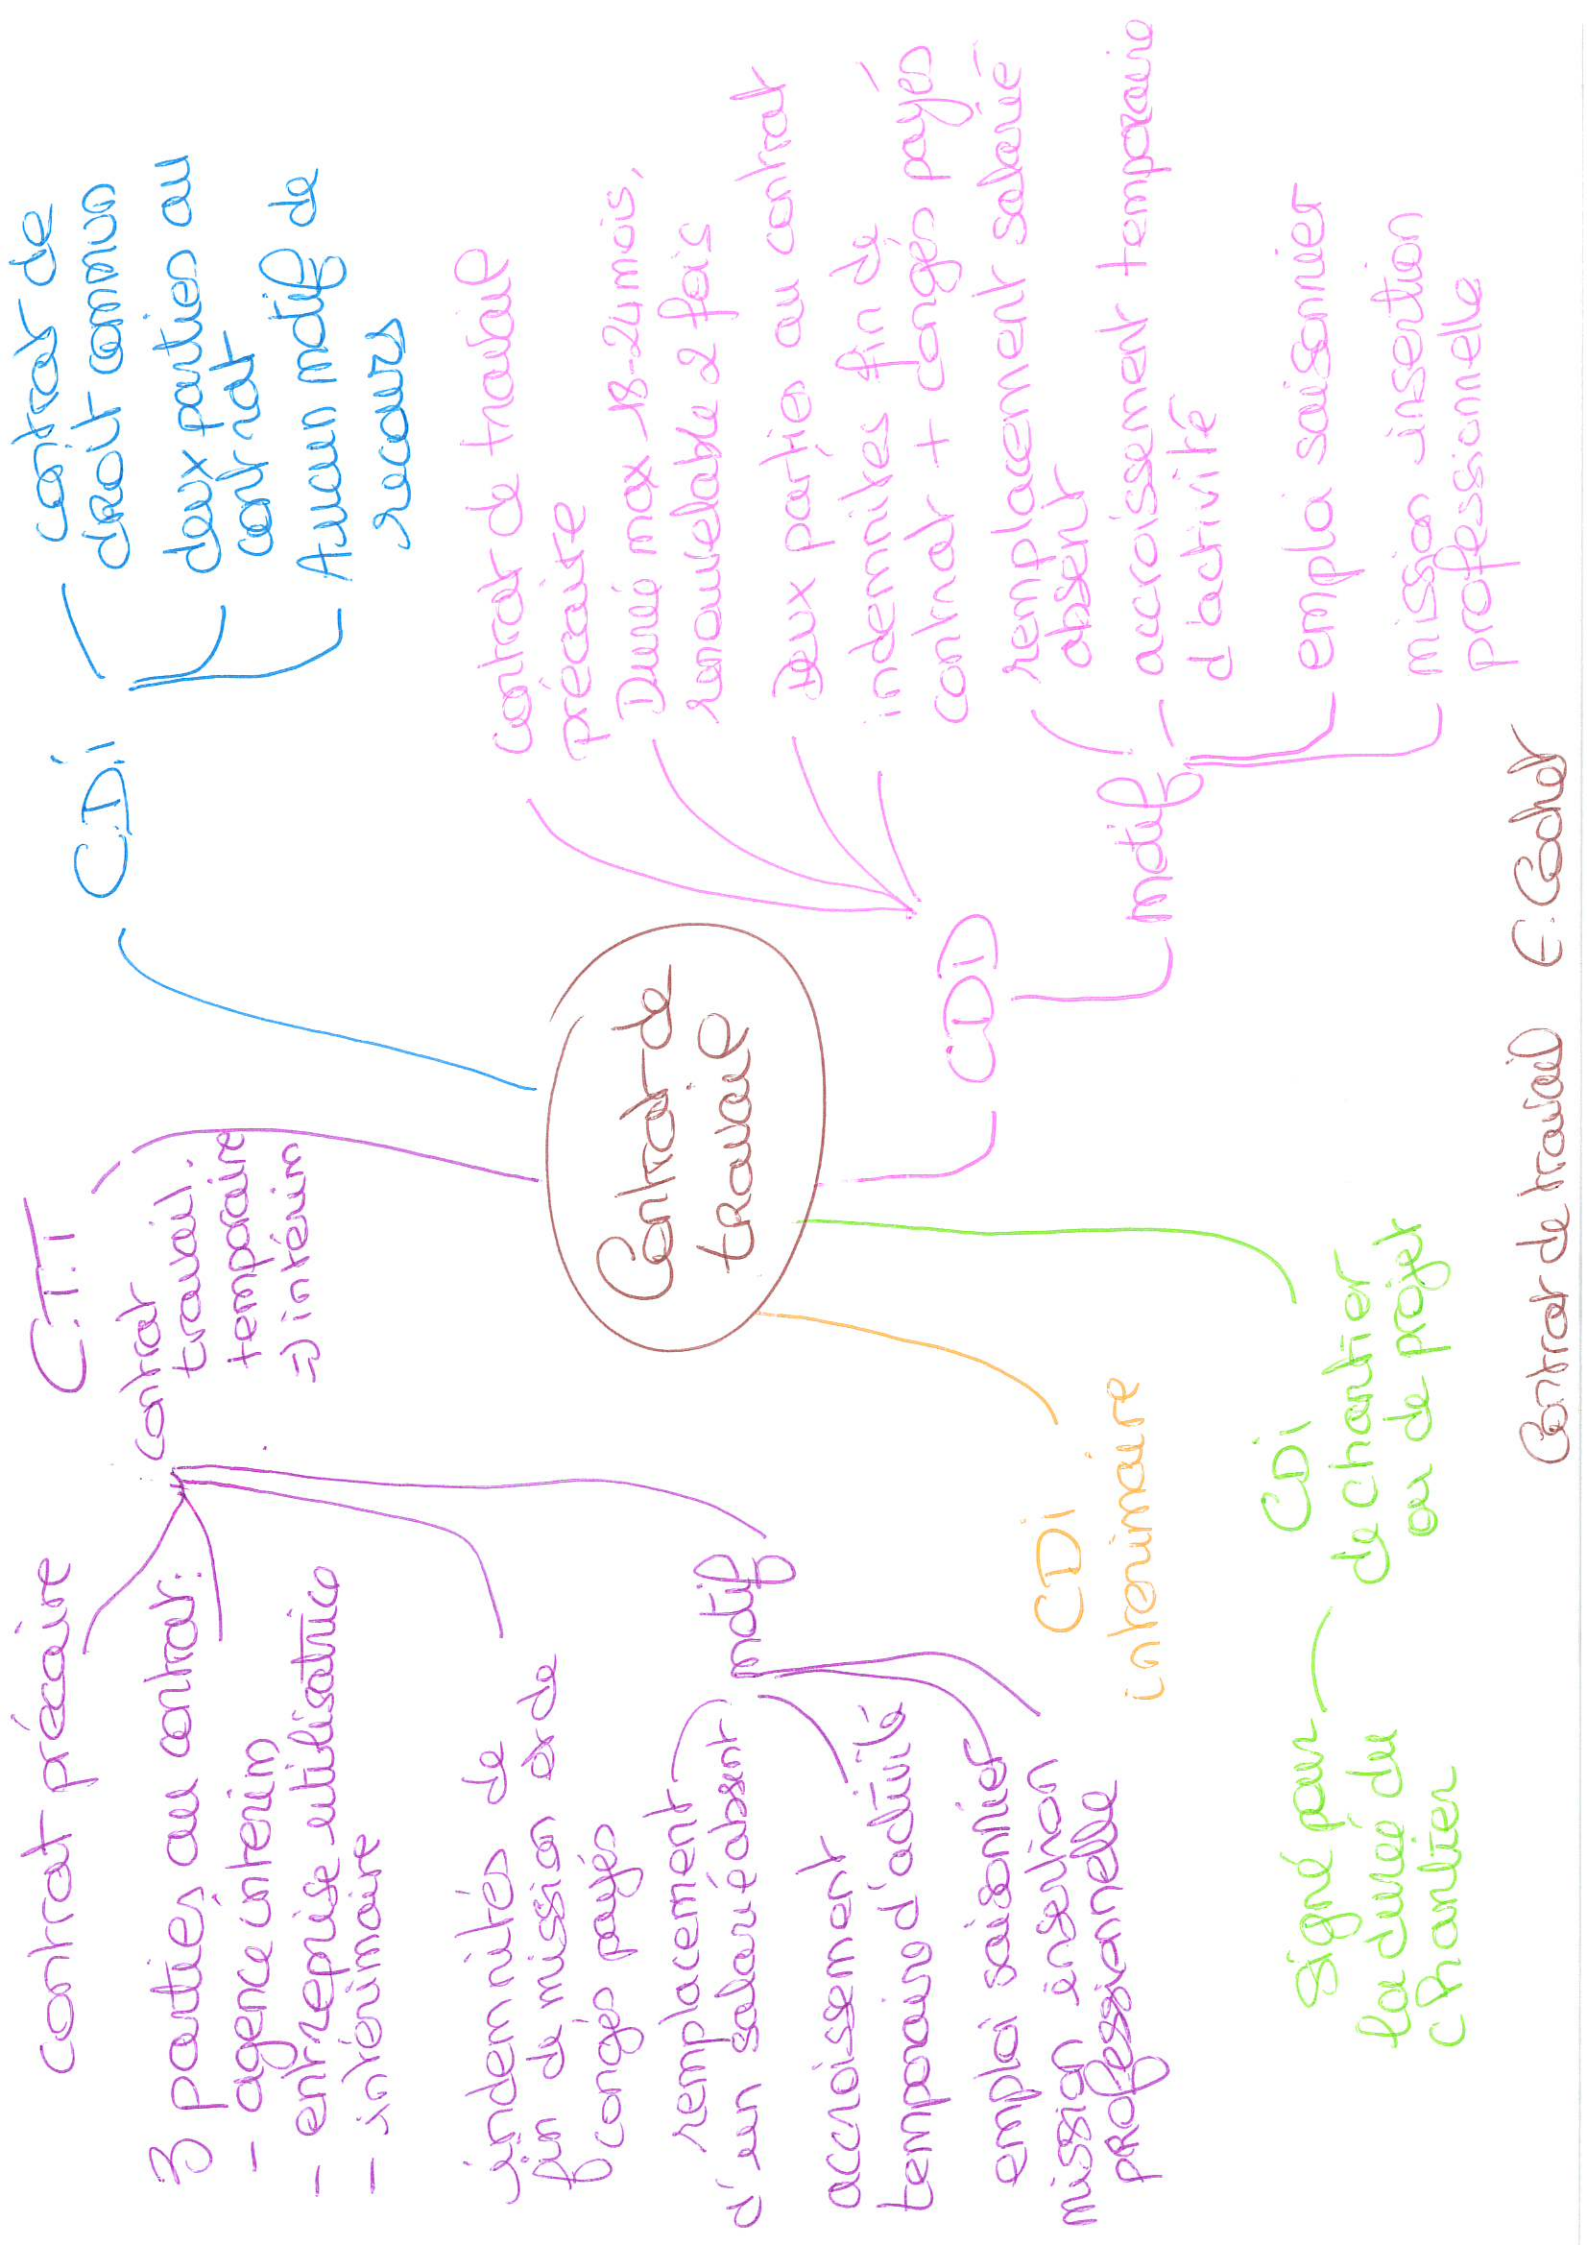 Contrat de
travail
C.D.I
contrat de
droit commun
deux parties au
contrat
Aucun motif de
recours
CDD
contrat de travail
précaire
Durée max 18-24 mois,
renouvelable 2 fois
Deux parties au contrat
indemnites fin de
contrat + congés payés
motif
remplacement salarié
absent
accroissement temporaire
d'activité
emploi saisonnier
mission insertion
professionnelle
CDI
de chantier
ou de projet
Signé pour
la durée du
chantier
CDI
interimaire
C.T.T
contrat
travail.
temporaire
=) intérim
contrat précaire
3 parties au contrat:
- agence interim
- entreprise utilisatrice
- intérimaire
indemnités de
fin de mission et de
congés payés
motif
remplacement
d'un salarié absent
accroissement
temporaire d'activité
emploi saisonnier
mission insertion
professionnelle
Contrat de travail E. Cochet